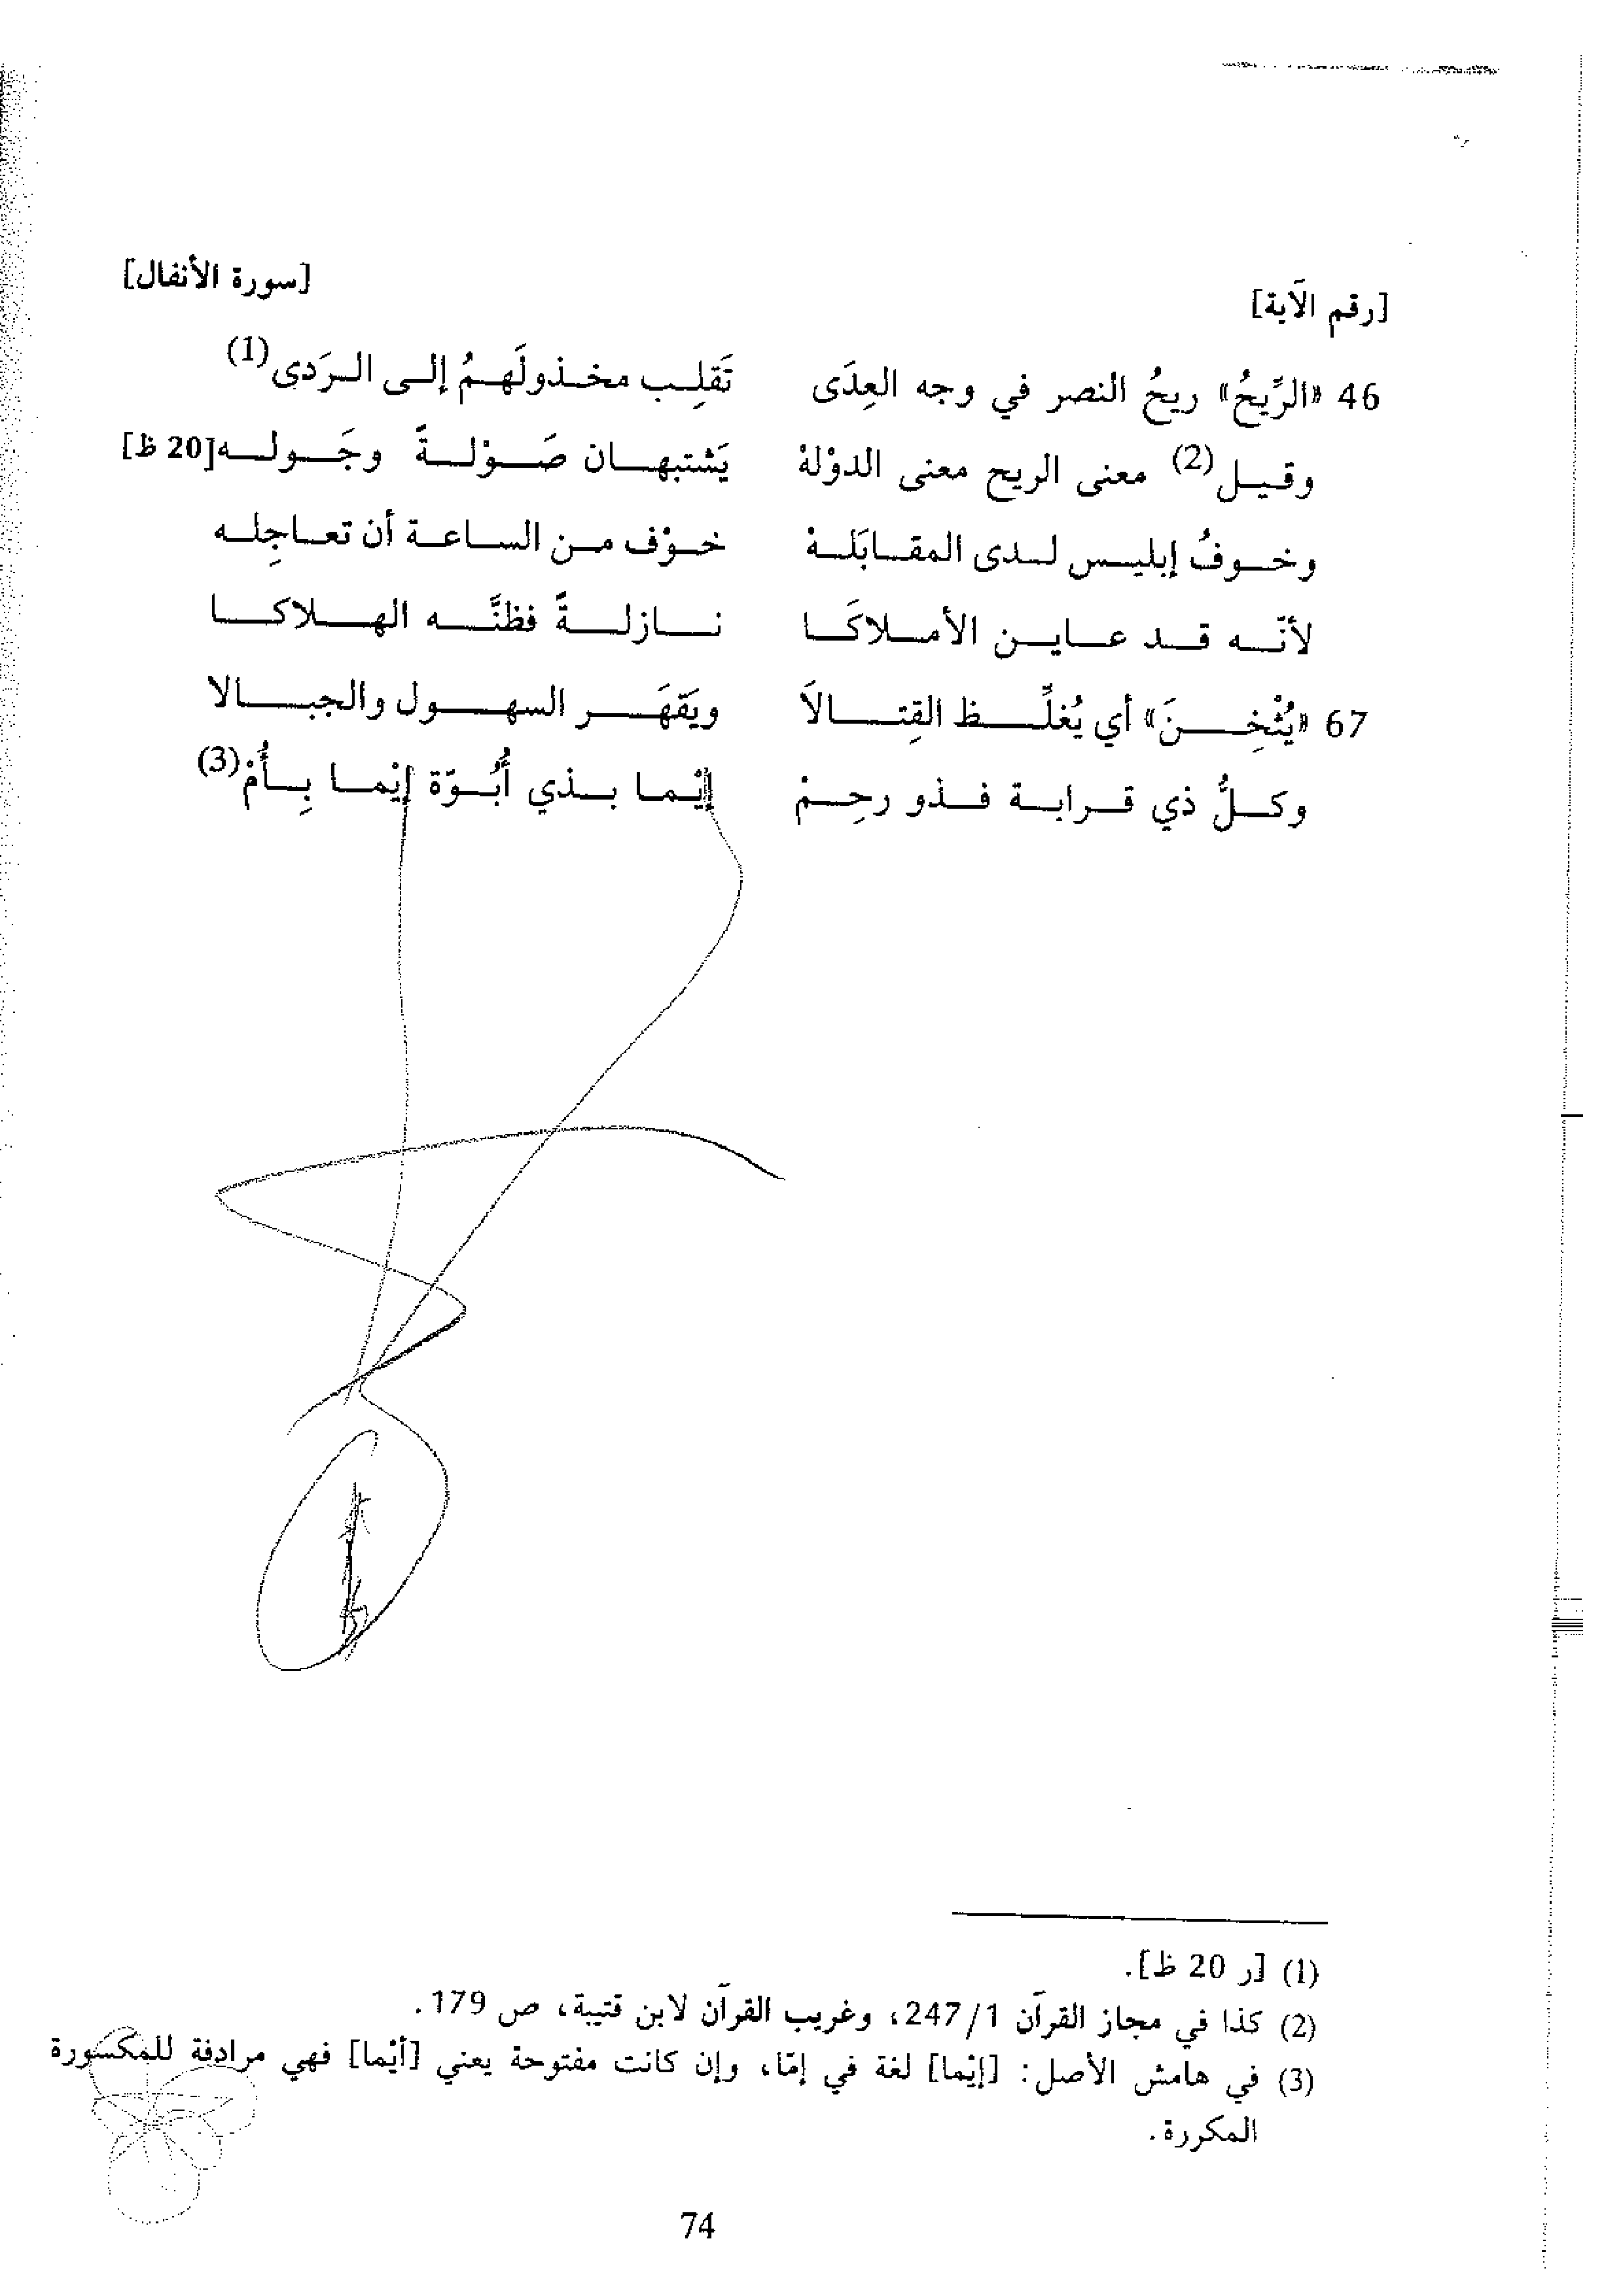 [رقم الآية] [سورة الأنفال]
46 «الرِّيحُ» ريحُ النصر في وجه العِدَى تَقلِب مخذولَهمُ إلى الرَدى(1)
وقيل(2) معنى الريح معنى الدوْلهْ يَشتبهان صَوْلةً وجَوله[20 ظ]
وخوفُ إبليس لدى المقابَلهْ خوْف من الساعة أن تعاجِله
لأنّه قد عاين الأملاكَا نازلةً فظنَّه الهلاكا
67 «يُثْخِنَ» أي يُغلِّظ القِتالاَ ويَقهَر السهول والجبالا
وكلُّ ذي قرابة فذو رحِمْ إيْما بذي أُبُوّة إيْما بِأُمْ(3)
(1) [ر 20 ظ].
(2) كذا في مجاز القرآن 247/1، وغريب القرآن لابن قتيبة، ص 179.
(3) في هامش الأصل: [إيْما] لغة في إمّا، وإن كانت مفتوحة يعني [أيْما] فهي مرادفة للمكسورة
المكررة.
74